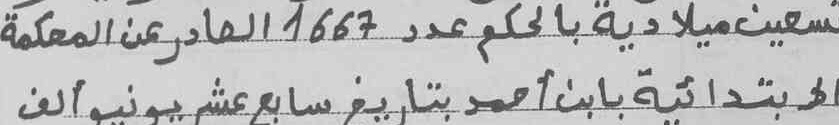 تسعين ميلادية بالحكم عدد 1667 الصادر عن المحكمة
الابتدائية بابن أحمد بتاريخ سابع عشر يونيو ألف